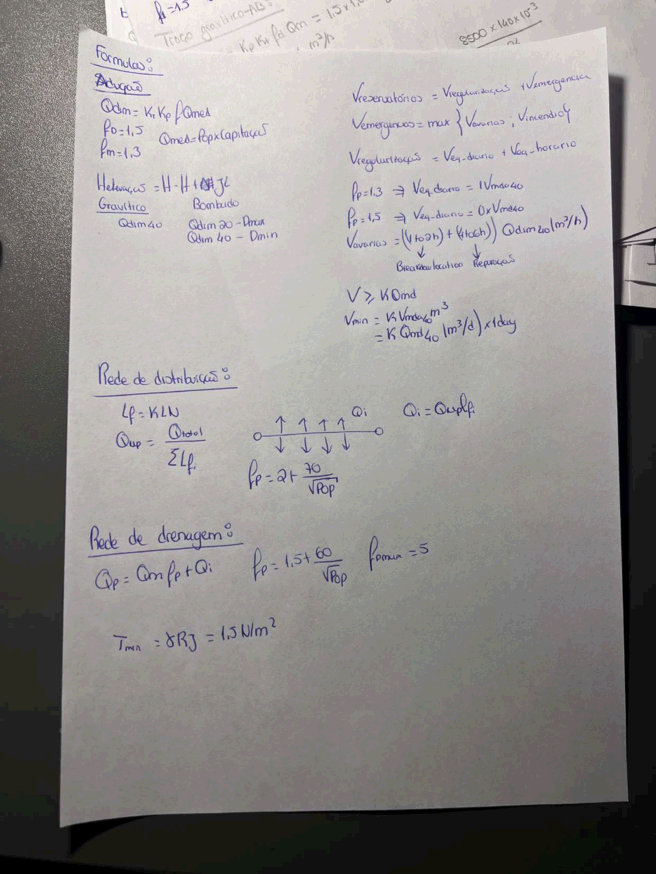 fp=1,5
Troço gravítico-AB:
Kp Kr fd Qm = 1,5×1,
m³/h
8500 × 140 × 10⁻³
Formulas:
Adução
Qdim = Kr Kp f Qmed
fp=1,5 Qmed=Pop×Capitação
fm=1,3
H - H + JL
Gravítico Bombado
Qdim40 Qdim20 - Dmax
Qdim40 - Dmin
Vreservatórios = Vregularização + Vemergência
Vemergência = max { Vavarias ; Vincendio }
Vregularização = Veq-diario + Veq-horario
fp=1,3 ⇒ Veq-diario = 1Vmd40
fp=1,5 ⇒ Veq-diario = 0×Vmd40
Vavarias = ((1 to 2h) + (4 to 6h)) Qdim40 (m³/h)
↓ ↓
Break location Reparação
V ≥ K Qmd
Vmin = K Vmd40 m³
= K Qmd40 (m³/d) × 1day
Rede de distribuição:
Lf = KLN
Qusp = Qtotal / ΣLf
Qi
Qi = Qusp Lfi
fp = 2 + 70 / √Pop
Rede de drenagem:
Qp = Qm fp + Qi fp = 1,5 + 60 / √Pop fpmax = 5
Tmin = γRJ = 1,5 N/m²